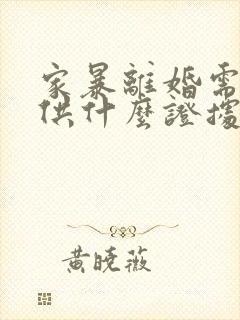 家暴離婚需
供什麼證據
黃曉薇